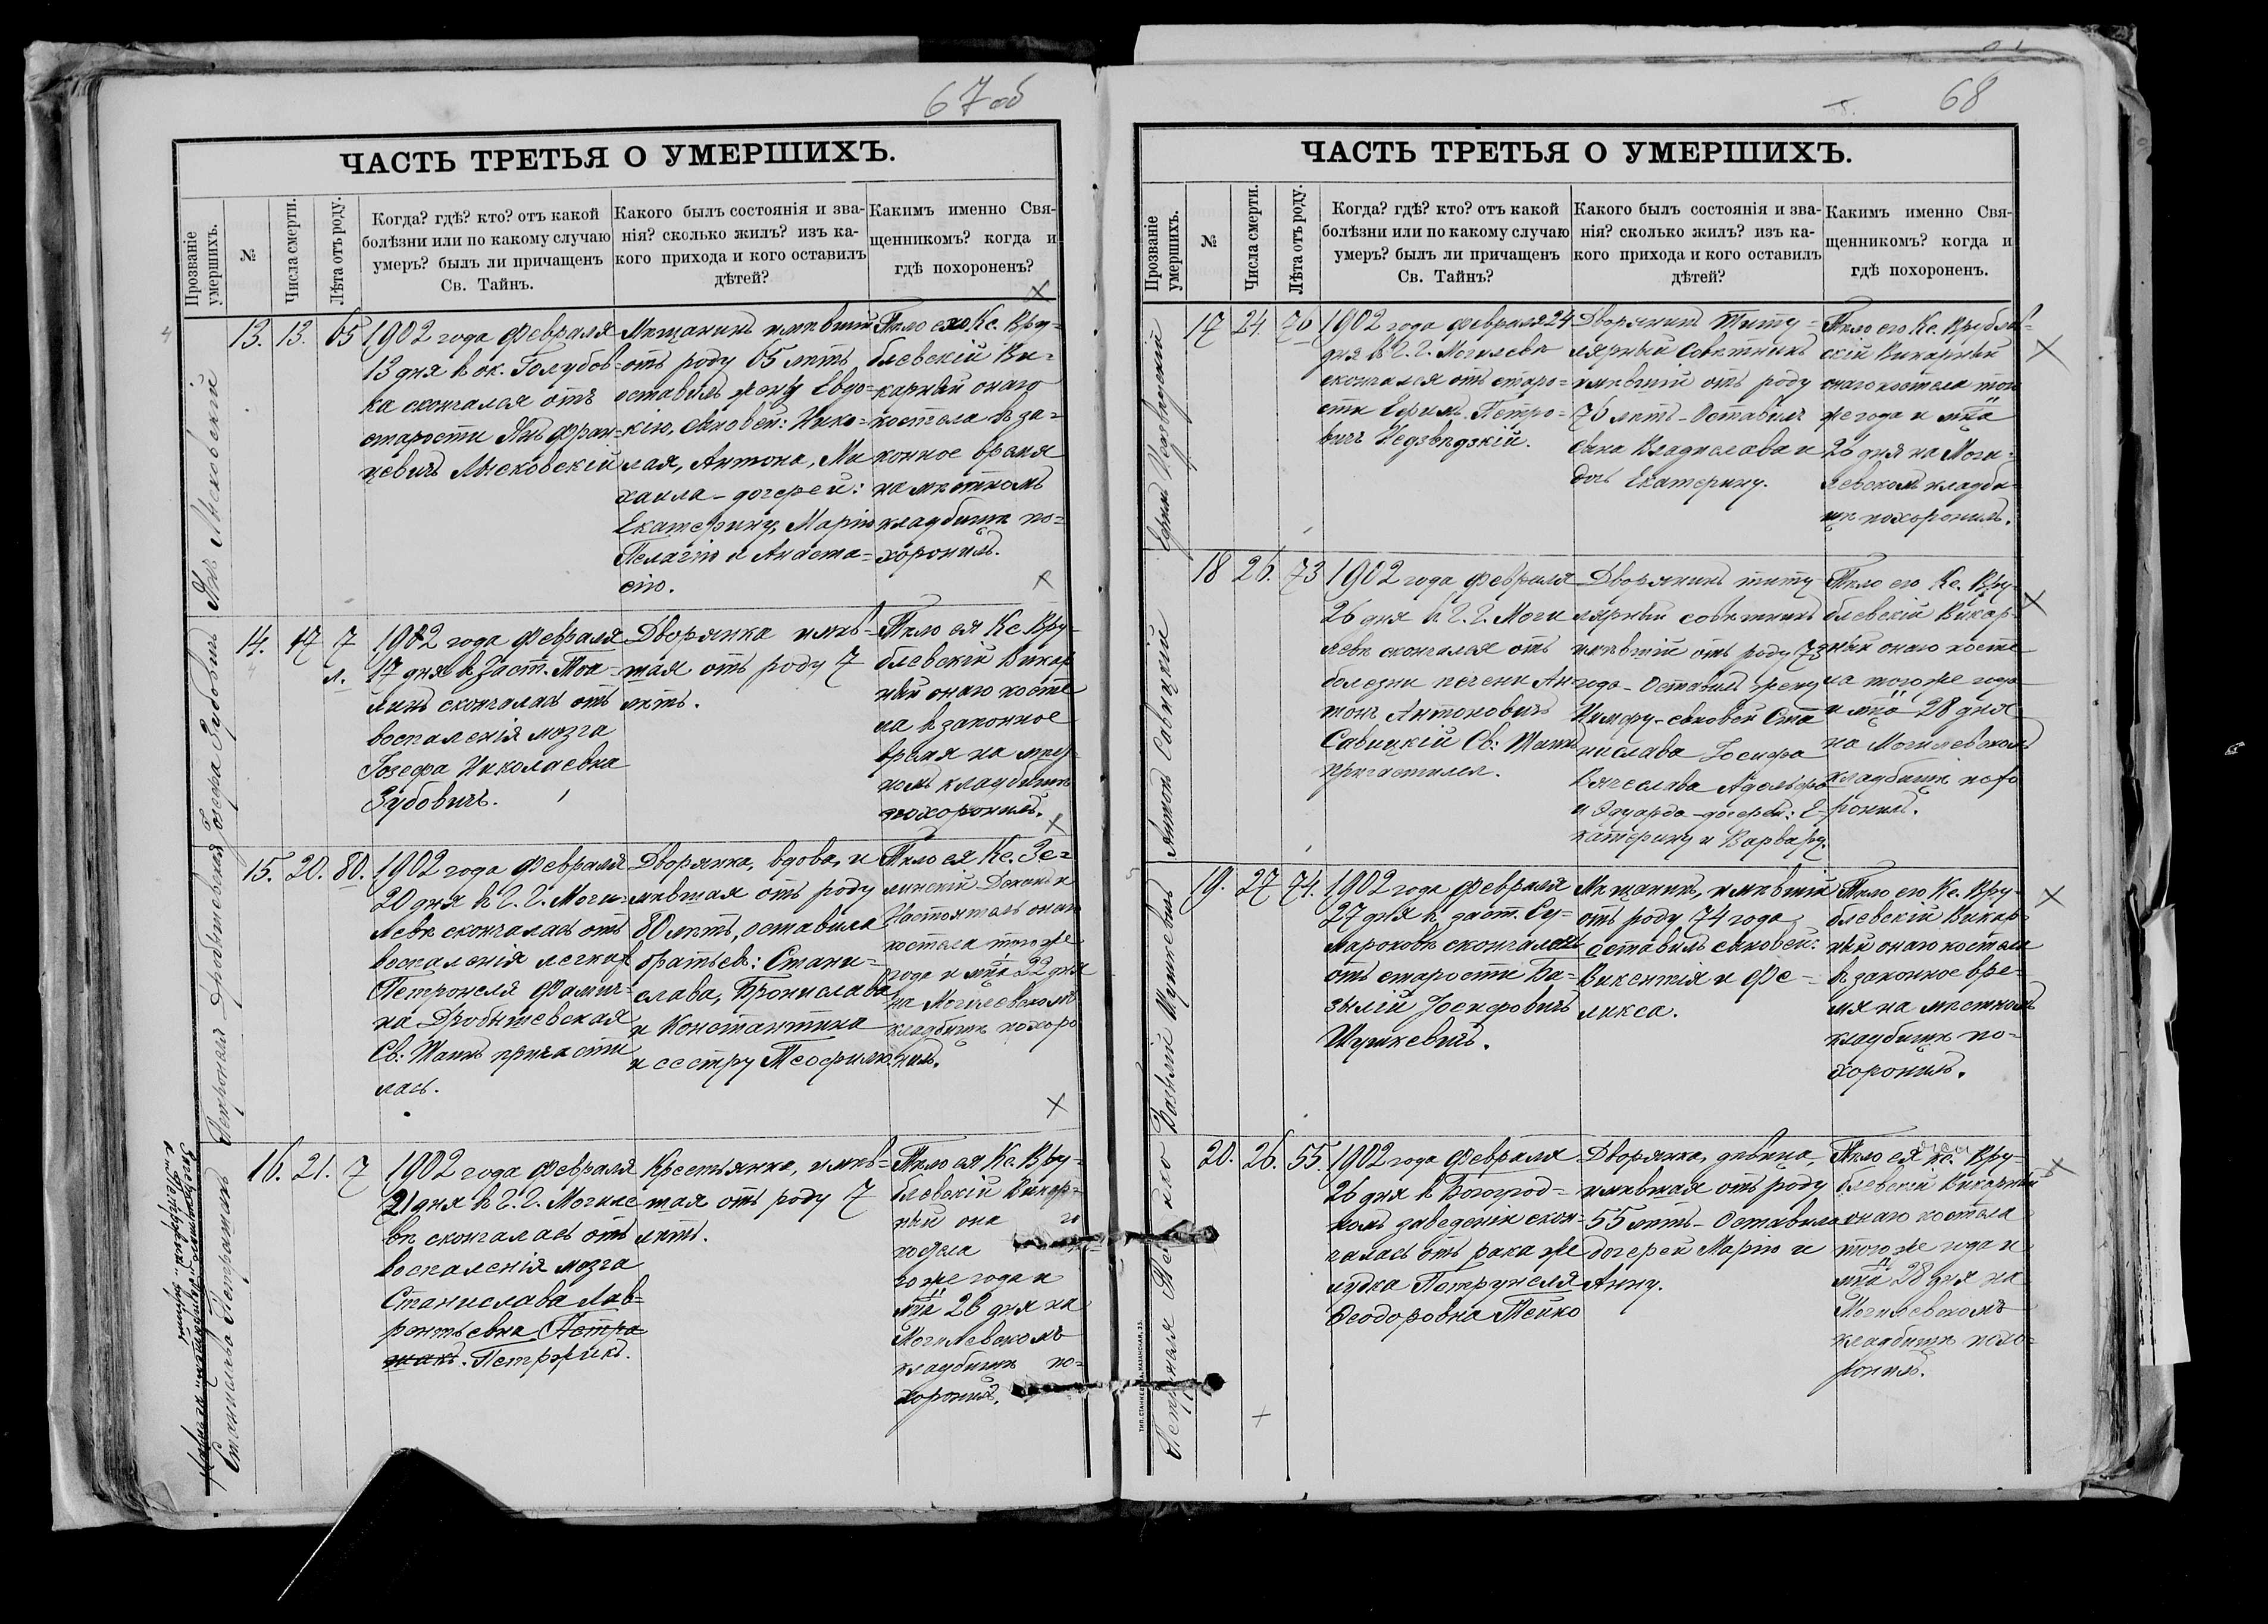 67 об
ЧАСТЬ ТРЕТЬЯ О УМЕРШИХЪ.
Прозваніе умершихъ.
№
Числа смерти.
Лѣта отъ роду.
Когда? гдѣ? кто? отъ какой
болѣзни или по какому случаю
умеръ? былъ ли причащенъ
Св. Тайнъ.
Какого былъ состоянія и зва-
нія? сколько жилъ? изъ ка-
кого прихода и кого оставилъ
дѣтей?
Какимъ именно Свя-
щенникомъ? когда и
гдѣ похороненъ?
Янъ Лысковскій
13. 13. 65
1902 года Февраля
13 дня в ок. Голубов-
ка скончался отъ
старости Янъ Фран-
цевичъ Лысковскій
Мѣщанинъ имѣвшій
отъ роду 65 лѣтъ
оставилъ жену Евдо-
кію, сыновей: Нико-
лая, Антона, Ми
хаила - дочерей:
Екатерину, Марію
Пелагію и Анаста-
сію.
Тѣло его Кс. Вру-
блевскій Ви-
карный онаго
костела в за-
конное время
на мѣстномъ
кладбищѣ по-
хоронилъ.
Іозефа Зубовичъ
14. 17 7 л.
1902 года Февраля
17 дня в Заст.
скончалась отъ
воспаленія мозга
Іозефа Николаевна
Зубовичъ.
Дворянка имѣв-
шая отъ роду 7
лѣтъ.
Тѣло ея Кс. Вру-
блевскій Викар
ный онаго косте
ла в законное
время на мѣст-
номъ кладбищѣ
похоронилъ.
Петронеля Дробышевская
15. 20. 80.
1902 года Февраля
20 дня в Г. Г. Моги-
левѣ скончалась отъ
воспаленія легкихъ
Петронеля Фамич-
на Дробышевская
Св: Таинъ причасти
лась.
Дворянка, вдова, и
мѣвшая отъ роду
80 лѣтъ, оставила
братьевъ: Стани-
слава, Бронислава
и Константина
и сестру Теофилю.
Тѣло ея Кс. Зе-
линскій Деканъ и
Настоятель онаго
костела того же
года и мца 22 дня
на Могилевскомъ
кладбищѣ похоро
нилъ.
Станислава Петражикъ
16. 21. 7
1902 года Февраля
21 дня в Г. Г. Могиле
вѣ скончалась отъ
воспаленія мозга
Станислава Лав-
рентьевна Петра
жакъ. Петржикъ.
Крестьянка, имѣв-
шая отъ роду 7
лѣтъ.
Тѣло ея Кс. Вру-
блевскій Викар-
ный она го
костела
го же года и
мца 23 дня на
Могилевскомъ
кладбищѣ по-
хоронилъ.
68
ЧАСТЬ ТРЕТЬЯ О УМЕРШИХЪ.
Прозваніе умершихъ.
№
Числа смерти.
Лѣта отъ роду.
Когда? гдѣ? кто? отъ какой
болѣзни или по какому случаю
умеръ? былъ ли причащенъ
Св. Тайнъ?
Какого былъ состоянія и зва-
нія? сколько жилъ? изъ ка-
кого прихода и кого оставилъ
дѣтей?
Какимъ именно Свя-
щенникомъ? когда и
гдѣ похороненъ.
Ефимъ Недзвѣдзкій
17 24 76
1902 года февраля 24
дня в Г. Г. Могилевѣ
скончался отъ старо-
сти Ефимъ Петро-
вичъ Недзвѣдзкій.
Дворянинъ Титу-
лярный Совѣтникъ
имѣвшій отъ роду
76 лѣтъ - Оставилъ
сына Владислава и
дочь Екатерину.
Тѣло его Кс. Врублев-
скій Викарный
онаго костела того
же года и мца
26 дня на Моги-
левскомъ кладби-
щѣ похоронилъ.
Антонъ Савицкій
18 26. 73
1902 года Февраля
26 дня в Г. Г. Моги
левѣ скончался отъ
болезни печени Ан
тонъ Антоновичъ
Савицкій Св: Таинъ
причастился.
Дворянинъ титу
лярный совѣтникъ
имѣвшій отъ роду 73
года - Оставилъ жену
Нимфу - сыновей Ста
нислава Іосифа
Вячеслава Адольфа
и Эдуарда - дочерей: Е-
катерину и Варвару.
Тѣло его Кс. Вру-
блевскій Викар-
ный онаго косте
ла того же года
и мца 28 дня
на Могилевскомъ
кладбищѣ похо
ронилъ.
Базылій Шушкевичъ
19. 27 74.
1902 года февраля
27 дня в заст. Су-
мароковѣ скончался
отъ старости Ба-
зылій Іосифовичъ
Шушкевичъ.
Мѣщанинъ, имѣвшій
отъ роду 74 года
Оставилъ сыновей:
Викентія и Фе-
ликса.
Тѣло его Кс. Вру-
блевскій Викар-
ный онаго костела
в законное вре-
мя на мѣстномъ
кладбищѣ по-
хоронилъ.
20. 26. 55.
1902 года Февраля
26 дня в Богоугод-
номъ заведеніи скон-
чалась отъ рака же
лудка Петрунеля
Феодоровна Тейко
Дворянка, девица,
имѣвшая отъ роду
55 лѣтъ - Оставила
дочерей Марію и
Анну.
Тѣло ея Кс. Вру-
блевскій Викарный
онаго костела
того же года и
мца 28 дня на
Могилевскомъ
кладбищѣ похо-
ронилъ.